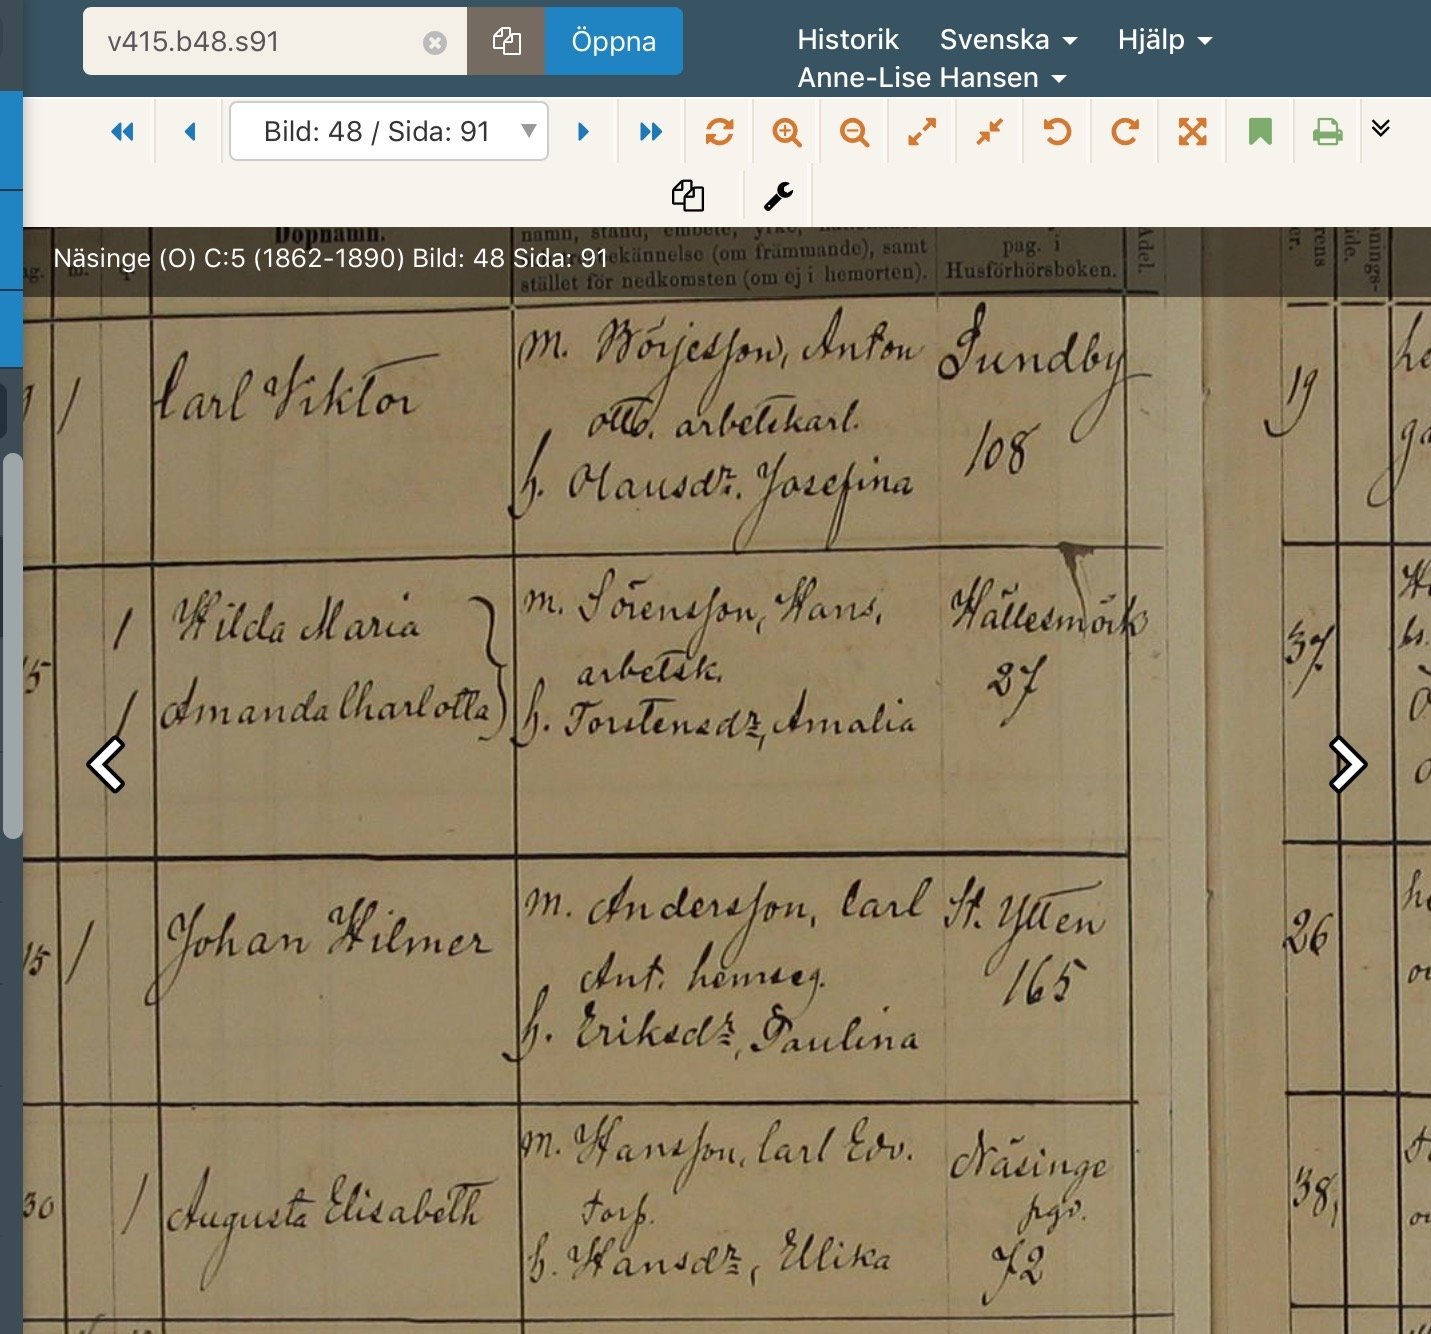 v415.b48.s91
Öppna
Historik
Svenska
Hjälp
Anne-Lise Hansen
Bild: 48 / Sida: 91
Dopnamn.
namn, stånd, embete, yrke,
bekännelse (om främmande), samt
stället för nedkomsten (om ej i hemorten).
pag. i
Husförhörsboken.
Adel.
Näsinge (O) C:5 (1862-1890) Bild: 48 Sida: 91
1
Carl Viktor
m. Börjesson, Anton
otto. arbetskarl.
h. Olausdr. Josefina
Sundby
108
19
15
1
Hilda Maria
1
Amanda Charlotta
m. Sörensson, Hans,
arbetsk.
h. Torstensdr, Amalia
Hällesmörk
27
37
15
1
Johan Hilmer
m. Andersson, Carl
Ant. hemseg.
h. Eriksdr, Paulina
St. Ytten
165
26
30
1
Augusta Elisabeth
m. Hansson, Carl Edv.
torp.
h. Hansdr, Ellika
Näsinge
pgd.
72
38,